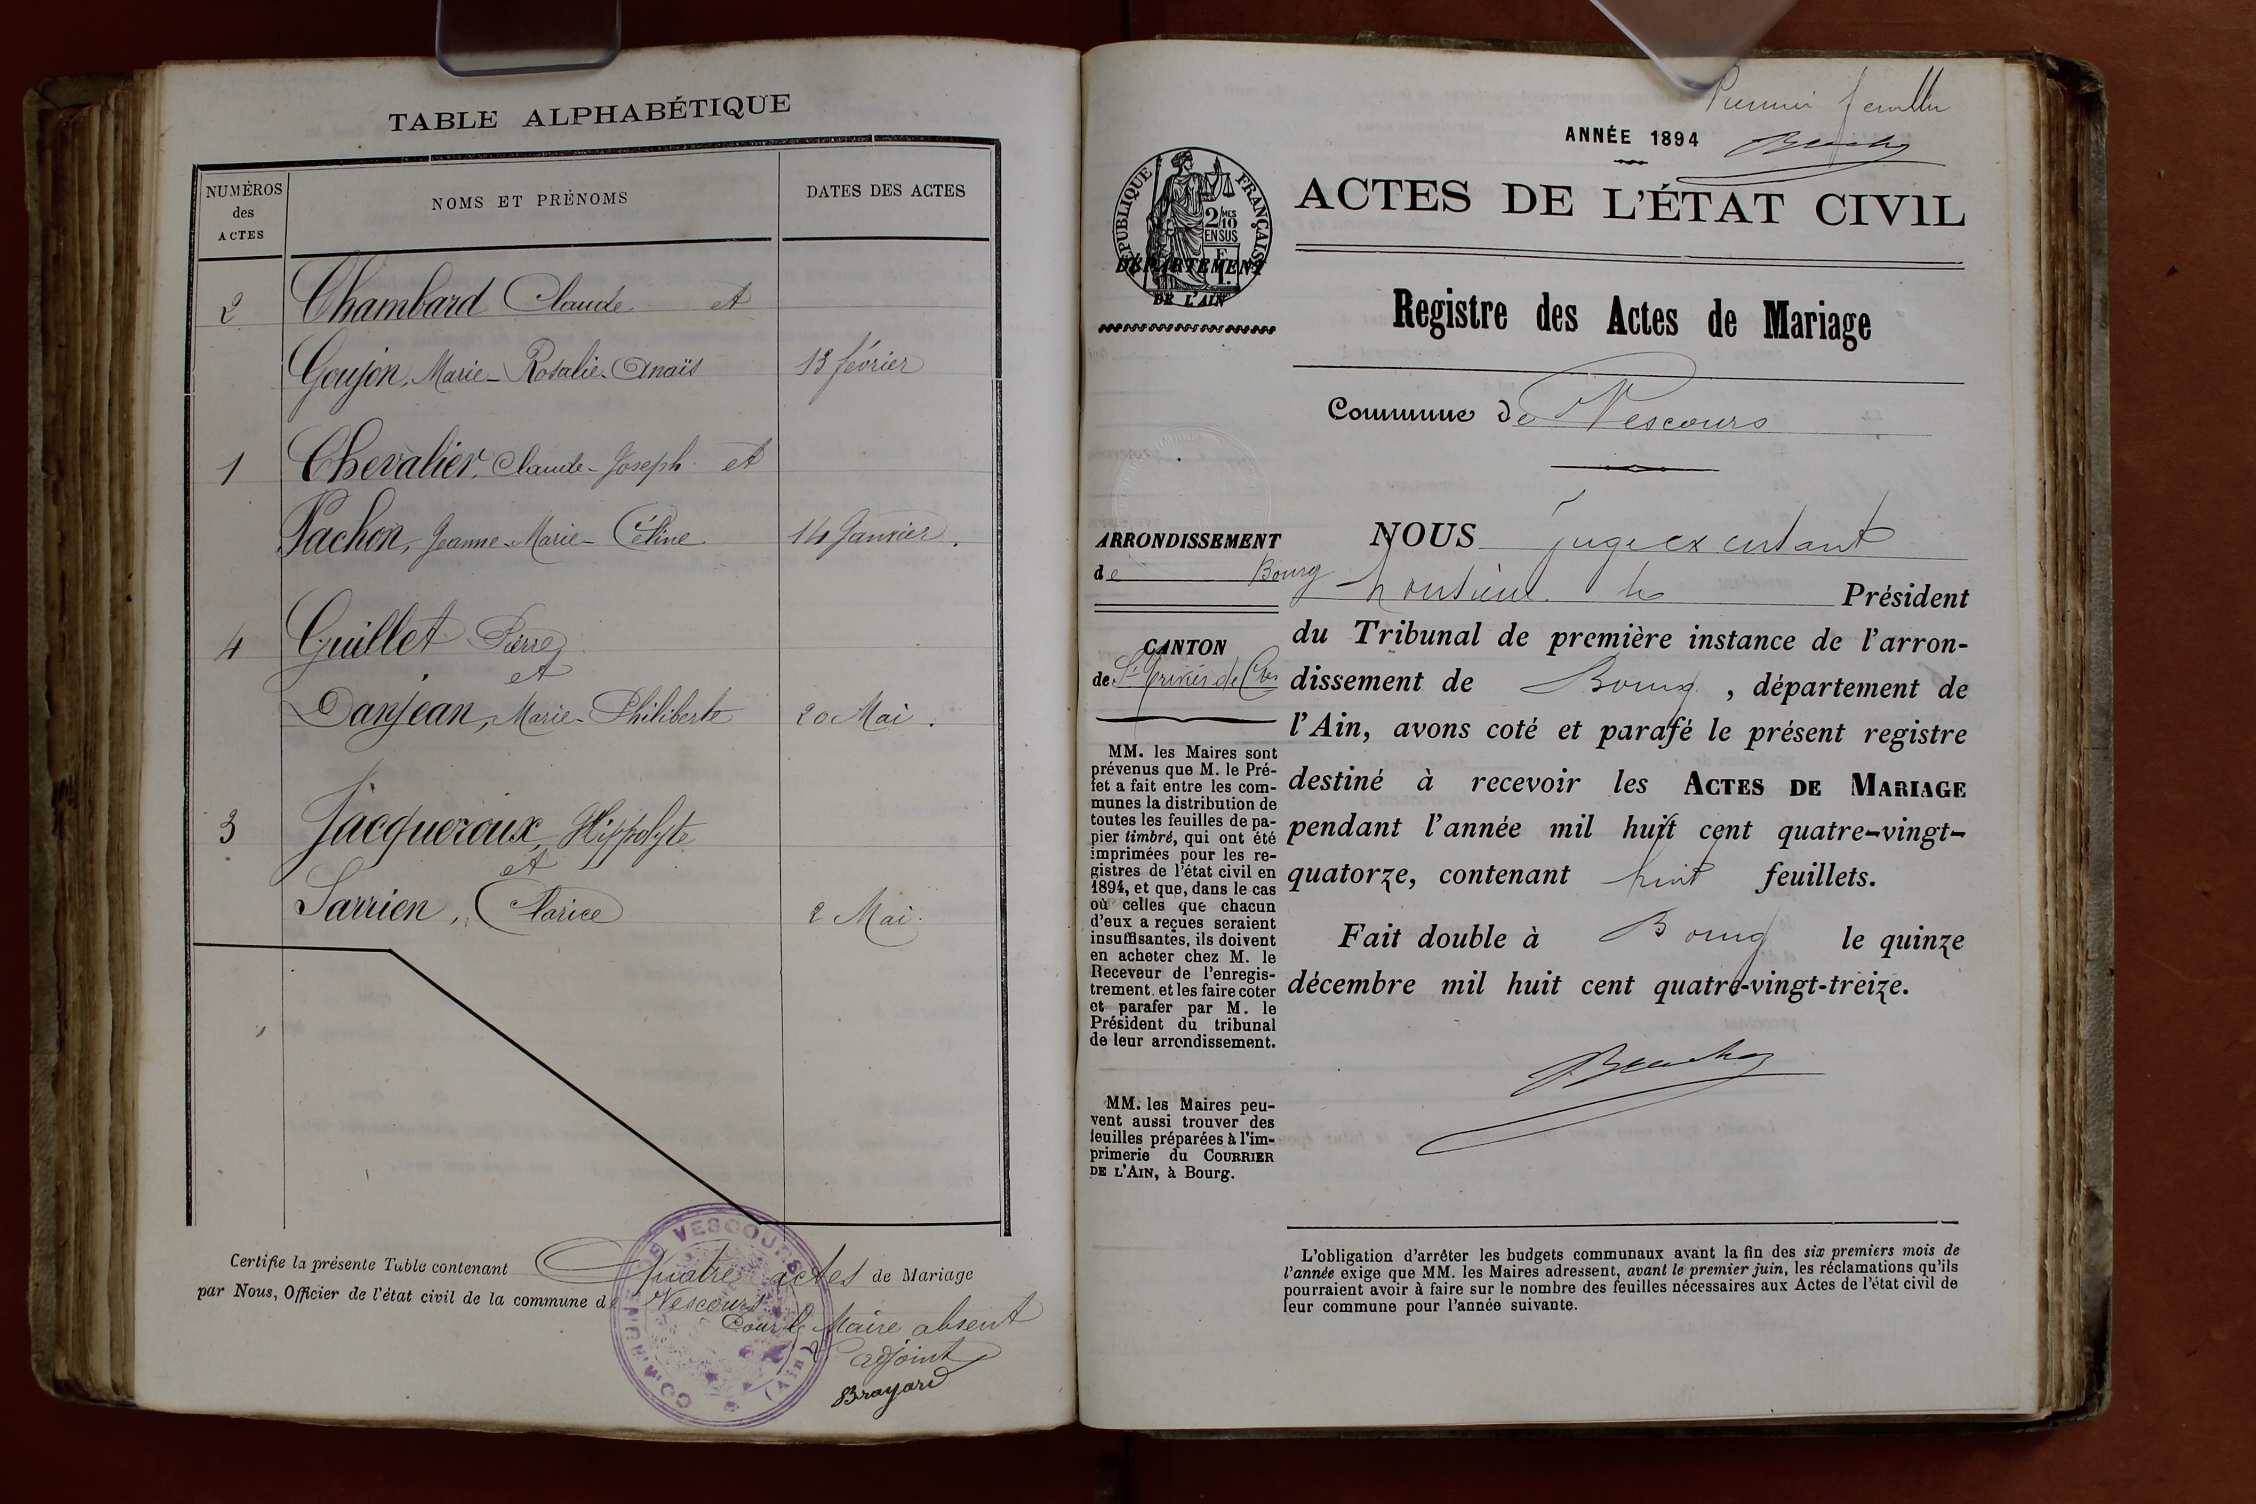 TABLE ALPHABÉTIQUE
NUMÉROS des ACTES
NOMS ET PRÉNOMS
DATES DES ACTES
2 Chambard Claude et
Goujon, Marie-Rosalie-Anaïs 13 février
1 Chevalier, Claude-Joseph et
Pachon, Jeanne-Marie-Céline 14 Janvier.
4 Guillet Pierre
et
Danjean, Marie-Philiberte 20 Mai.
3 Jacqueroux, Hippolyte
et
Sarrien, Clarice 2 Mai.
Certifie la présente Table contenant Quatre actes de Mariage
par Nous, Officier de l'état civil de la commune de Vescours
Pour le Maire absent
L'adjoint
Brayard
COMMUNE DE VESCOURS
(Ain)
Premier feuillet
ANNÉE 1894
RÉPUBLIQUE FRANÇAISE
2/10 MES
EN SUS
DÉPARTEMENT
DE L'AIN
ACTES DE L'ÉTAT CIVIL
Registre des Actes de Mariage
Commune de Vescours
ARRONDISSEMENT
de Bourg
CANTON
de St Trivier de Ctes
MM. les Maires sont
prévenus que M. le Pré-
fet a fait entre les com-
munes la distribution de
toutes les feuilles de pa-
pier timbré, qui ont été
imprimées pour les re-
gistres de l'état civil en
1894, et que, dans le cas
où celles que chacun
d'eux a reçues seraient
insuffisantes, ils doivent
en acheter chez M. le
Receveur de l'enregis-
trement et les faire coter
et parafer par M. le
Président du tribunal
de leur arrondissement.
MM. les Maires peu-
vent aussi trouver des
feuilles préparées à l'im-
primerie du COURRIER
DE L'AIN, à Bourg.
NOUS juge excusant
Monsieur le Président
du Tribunal de première instance de l'arron-
dissement de Bourg, département de
l'Ain, avons coté et parafé le présent registre
destiné à recevoir les ACTES DE MARIAGE
pendant l'année mil huit cent quatre-vingt-
quatorze, contenant huit feuillets.
Fait double à Bourg le quinze
décembre mil huit cent quatre-vingt-treize.
L'obligation d'arrêter les budgets communaux avant la fin des six premiers mois de
l'année exige que MM. les Maires adressent, avant le premier juin, les réclamations qu'ils
pourraient avoir à faire sur le nombre des feuilles nécessaires aux Actes de l'état civil de
leur commune pour l'année suivante.